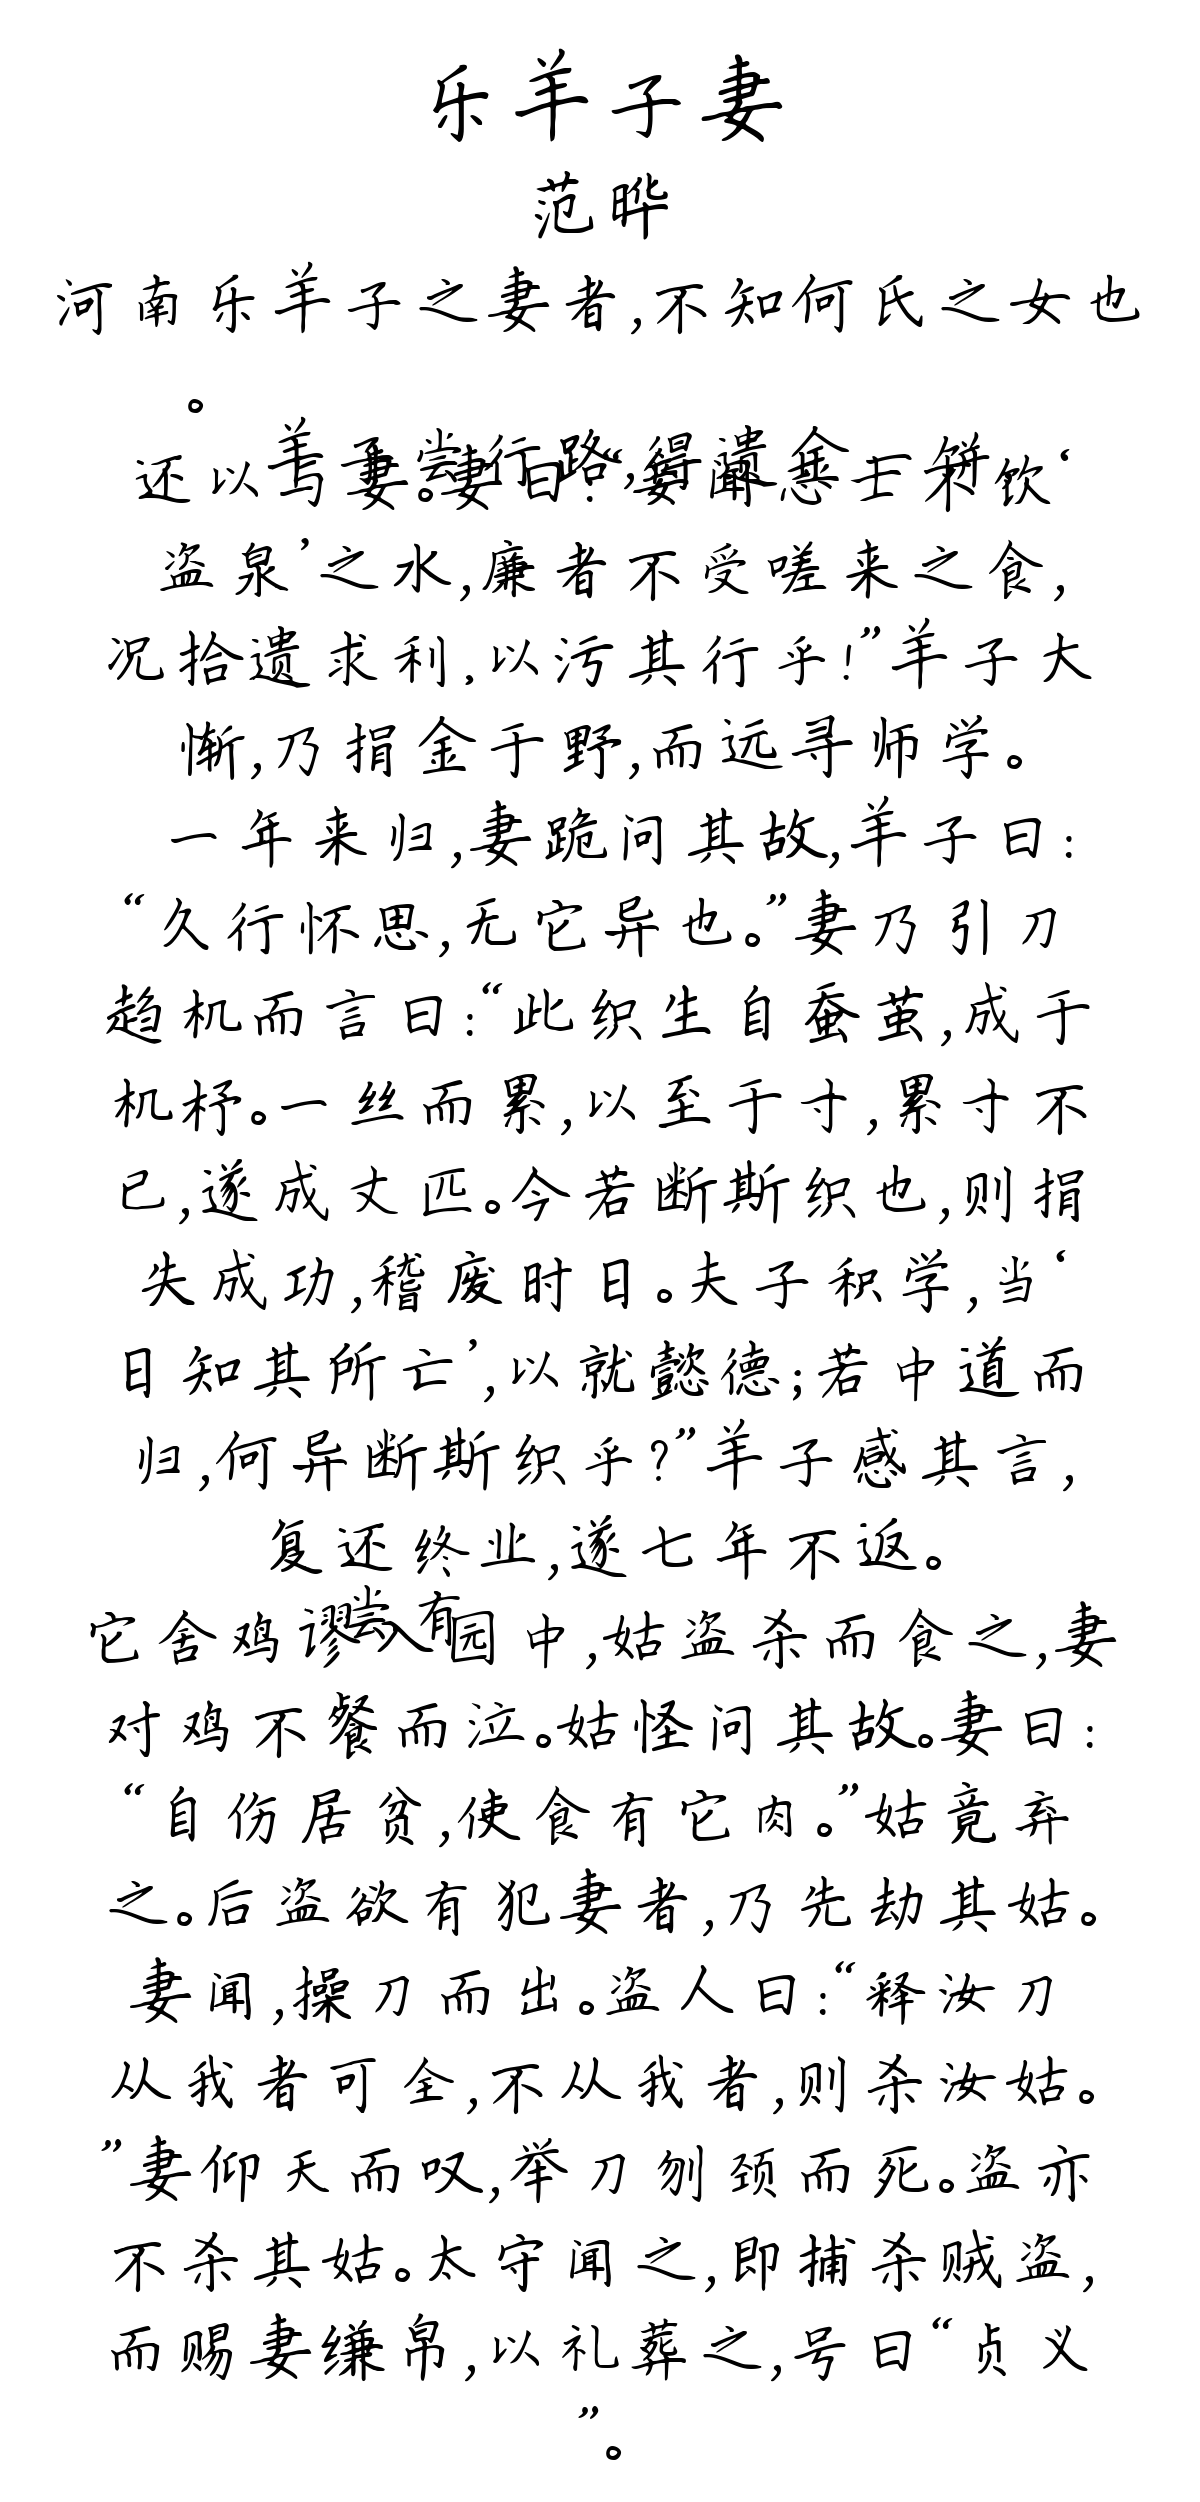 乐羊子妻
范晔
河南乐羊子之妻者,不知何氏之女也
。
羊子尝行路,得遗金一饼
还以与妻。妻曰:“妾闻志士不饮‘
盗泉’之水,廉者不受嗟来之食,
况拾遗求利,以污其行乎!”羊子大
惭,乃捐金于野,而远寻师学。
一年来归,妻跪问其故,羊子曰:
“久行怀思,无它异也。”妻乃引刀
趋机而言曰:“此织生自蚕茧,成于
机杼。一丝而累,以至于寸,累寸不
已,遂成丈匹。今若断斯织也,则捐
失成功,稽废时日。夫子积学,当‘
日知其所亡’,以就懿德;若中道而
归,何异断斯织乎?”羊子感其言,
复还终业,遂七年不返。
尝有
它舍鸡谬入园中,姑盗杀而食之,妻
对鸡不餐而泣。姑怪问其故。妻曰:
“自伤居贫,使食有它肉。”姑竟弃
之。后盗欲有犯妻者,乃先劫其姑。
妻闻,操刀而出。盗人曰:“释汝刀
从我者可全,不从我者,则杀汝姑。
”妻仰天而叹,举刀刎颈而死。盗亦
不杀其姑。太守闻之,即捕杀贼盗,
而赐妻缣帛,以礼葬之,号曰“贞义
”。